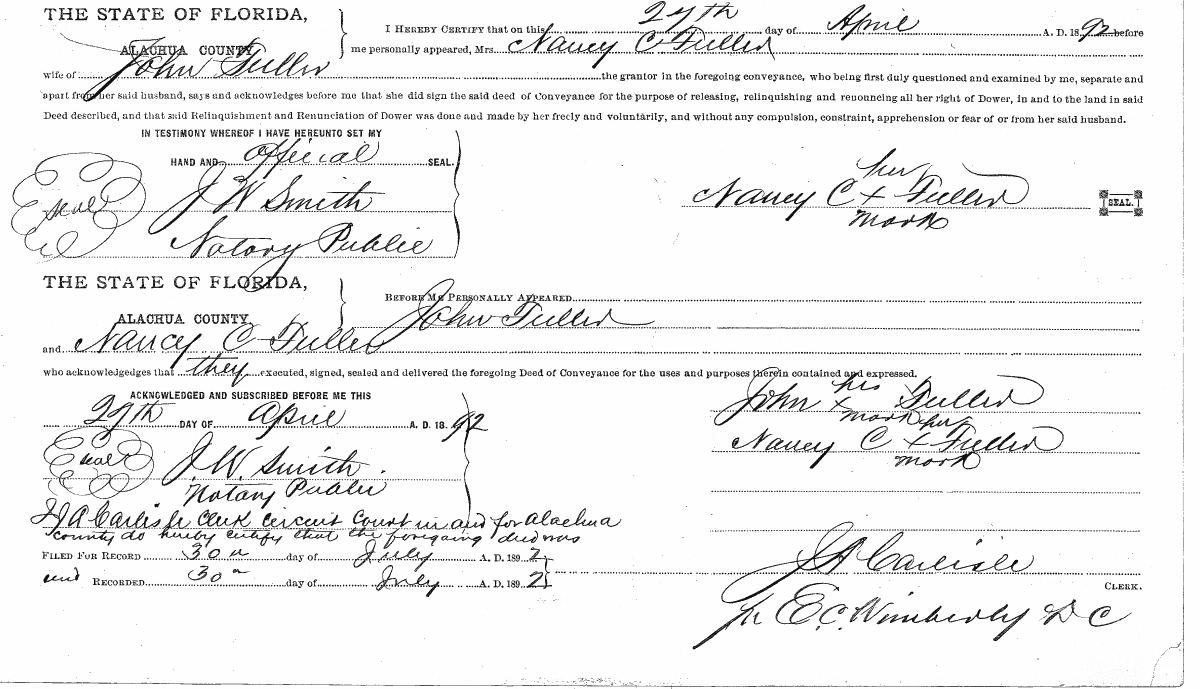 THE STATE OF FLORIDA,
ALACHUA COUNTY
I HEREBY CERTIFY that on this 27th day of April A. D. 1892 before
me personally appeared, Mrs. Nancy C Fuller
wife of John Fuller the grantor in the foregoing conveyance, who being first duly questioned and examined by me, separate and
apart from her said husband, says and acknowledges before me that she did sign the said deed of Conveyance for the purpose of releasing, relinquishing and renouncing all her right of Dower, in and to the land in said
Deed described, and that said Relinquishment and Renunciation of Dower was done and made by her freely and voluntarily, and without any compulsion, constraint, apprehension or fear of or from her said husband.
IN TESTIMONY WHEREOF I HAVE HEREUNTO SET MY
HAND AND official SEAL.
Seal
J W Smith
Notary Public
her
Nancy C + Fuller
mark
SEAL.
THE STATE OF FLORIDA,
ALACHUA COUNTY
BEFORE ME PERSONALLY APPEARED
John Fuller
and Nancy C Fuller
who acknowledgedges that they executed, signed, sealed and delivered the foregoing Deed of Conveyance for the uses and purposes therein contained and expressed.
ACKNWLEDGED AND SUBSCRIBED BEFORE ME THIS
27th DAY OF April A. D. 18 92
Seal
J. W. Smith
Notary Public
his
John x Fuller
mark
her
Nancy C + Fuller
mark
I J A Carlisle Clerk Circuit Court in and for Alachua
County do hereby certify that the foregoing deed was
FILED FOR RECORD 30 day of July A. D. 1892
and RECORDED 30 day of July A. D. 1892
J A Carlisle
CLERK.
pr E. C. Wimberly D C